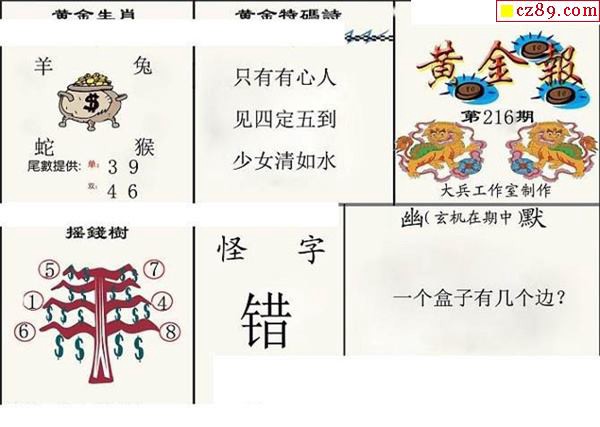 cz89.com
黄金生肖
羊 兔
$
蛇 猴
尾數提供: 单: 3 9
双: 4 6
黄金特碼詩
只有有心人
见四定五到
少女清如水
黄金報
第216期
大兵工作室制作
摇錢樹
⑤ ⑦
① ④
⑥ ⑧
$ $ $ $ $ $ $ $ $ $ $
怪 字
错
幽(玄机在期中)默
一个盒子有几个边?